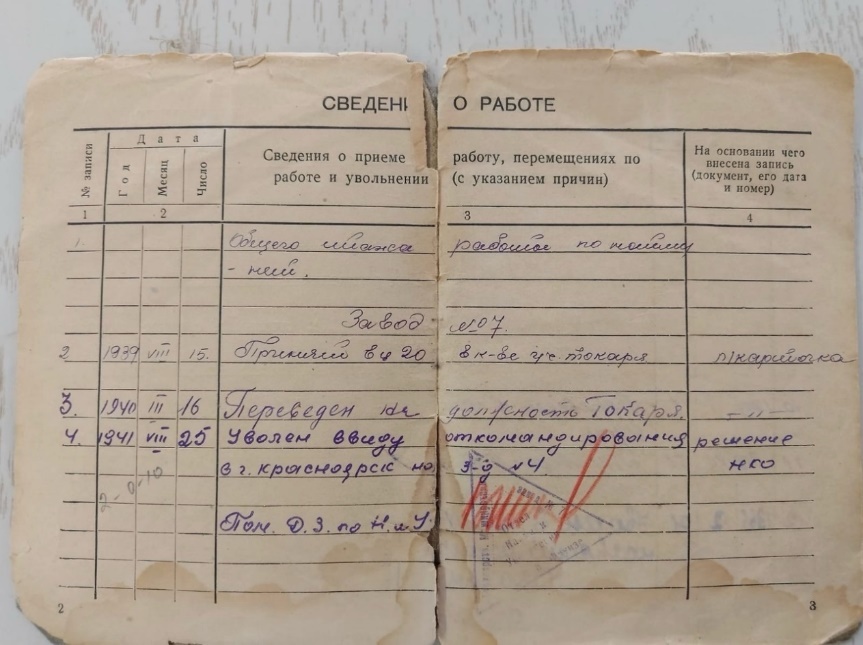 СВЕДЕНИ О РАБОТЕ
№ записи
Дата
Год
Месяц
Число
Сведения о приеме работу, перемещениях по
работе и увольнении (с указанием причин)
На основании чего
внесена запись
(документ, его дата
и номер)
1 2 3 4
1. Общего стажа работы по найму
- нет.
Завод №7.
2 1939 VIII 15. Принят в ц 20 в к-ве уч. токаря л/карточка
3. 1940 III 16 Переведен на должность Токаря. -"-
4. 1941 VIII 25 Уволен ввиду откомандирования решение
в г. Красноярск на з-д №4. НКО
2-0-10
Пом. Д.З. по Н. и У.
2 3